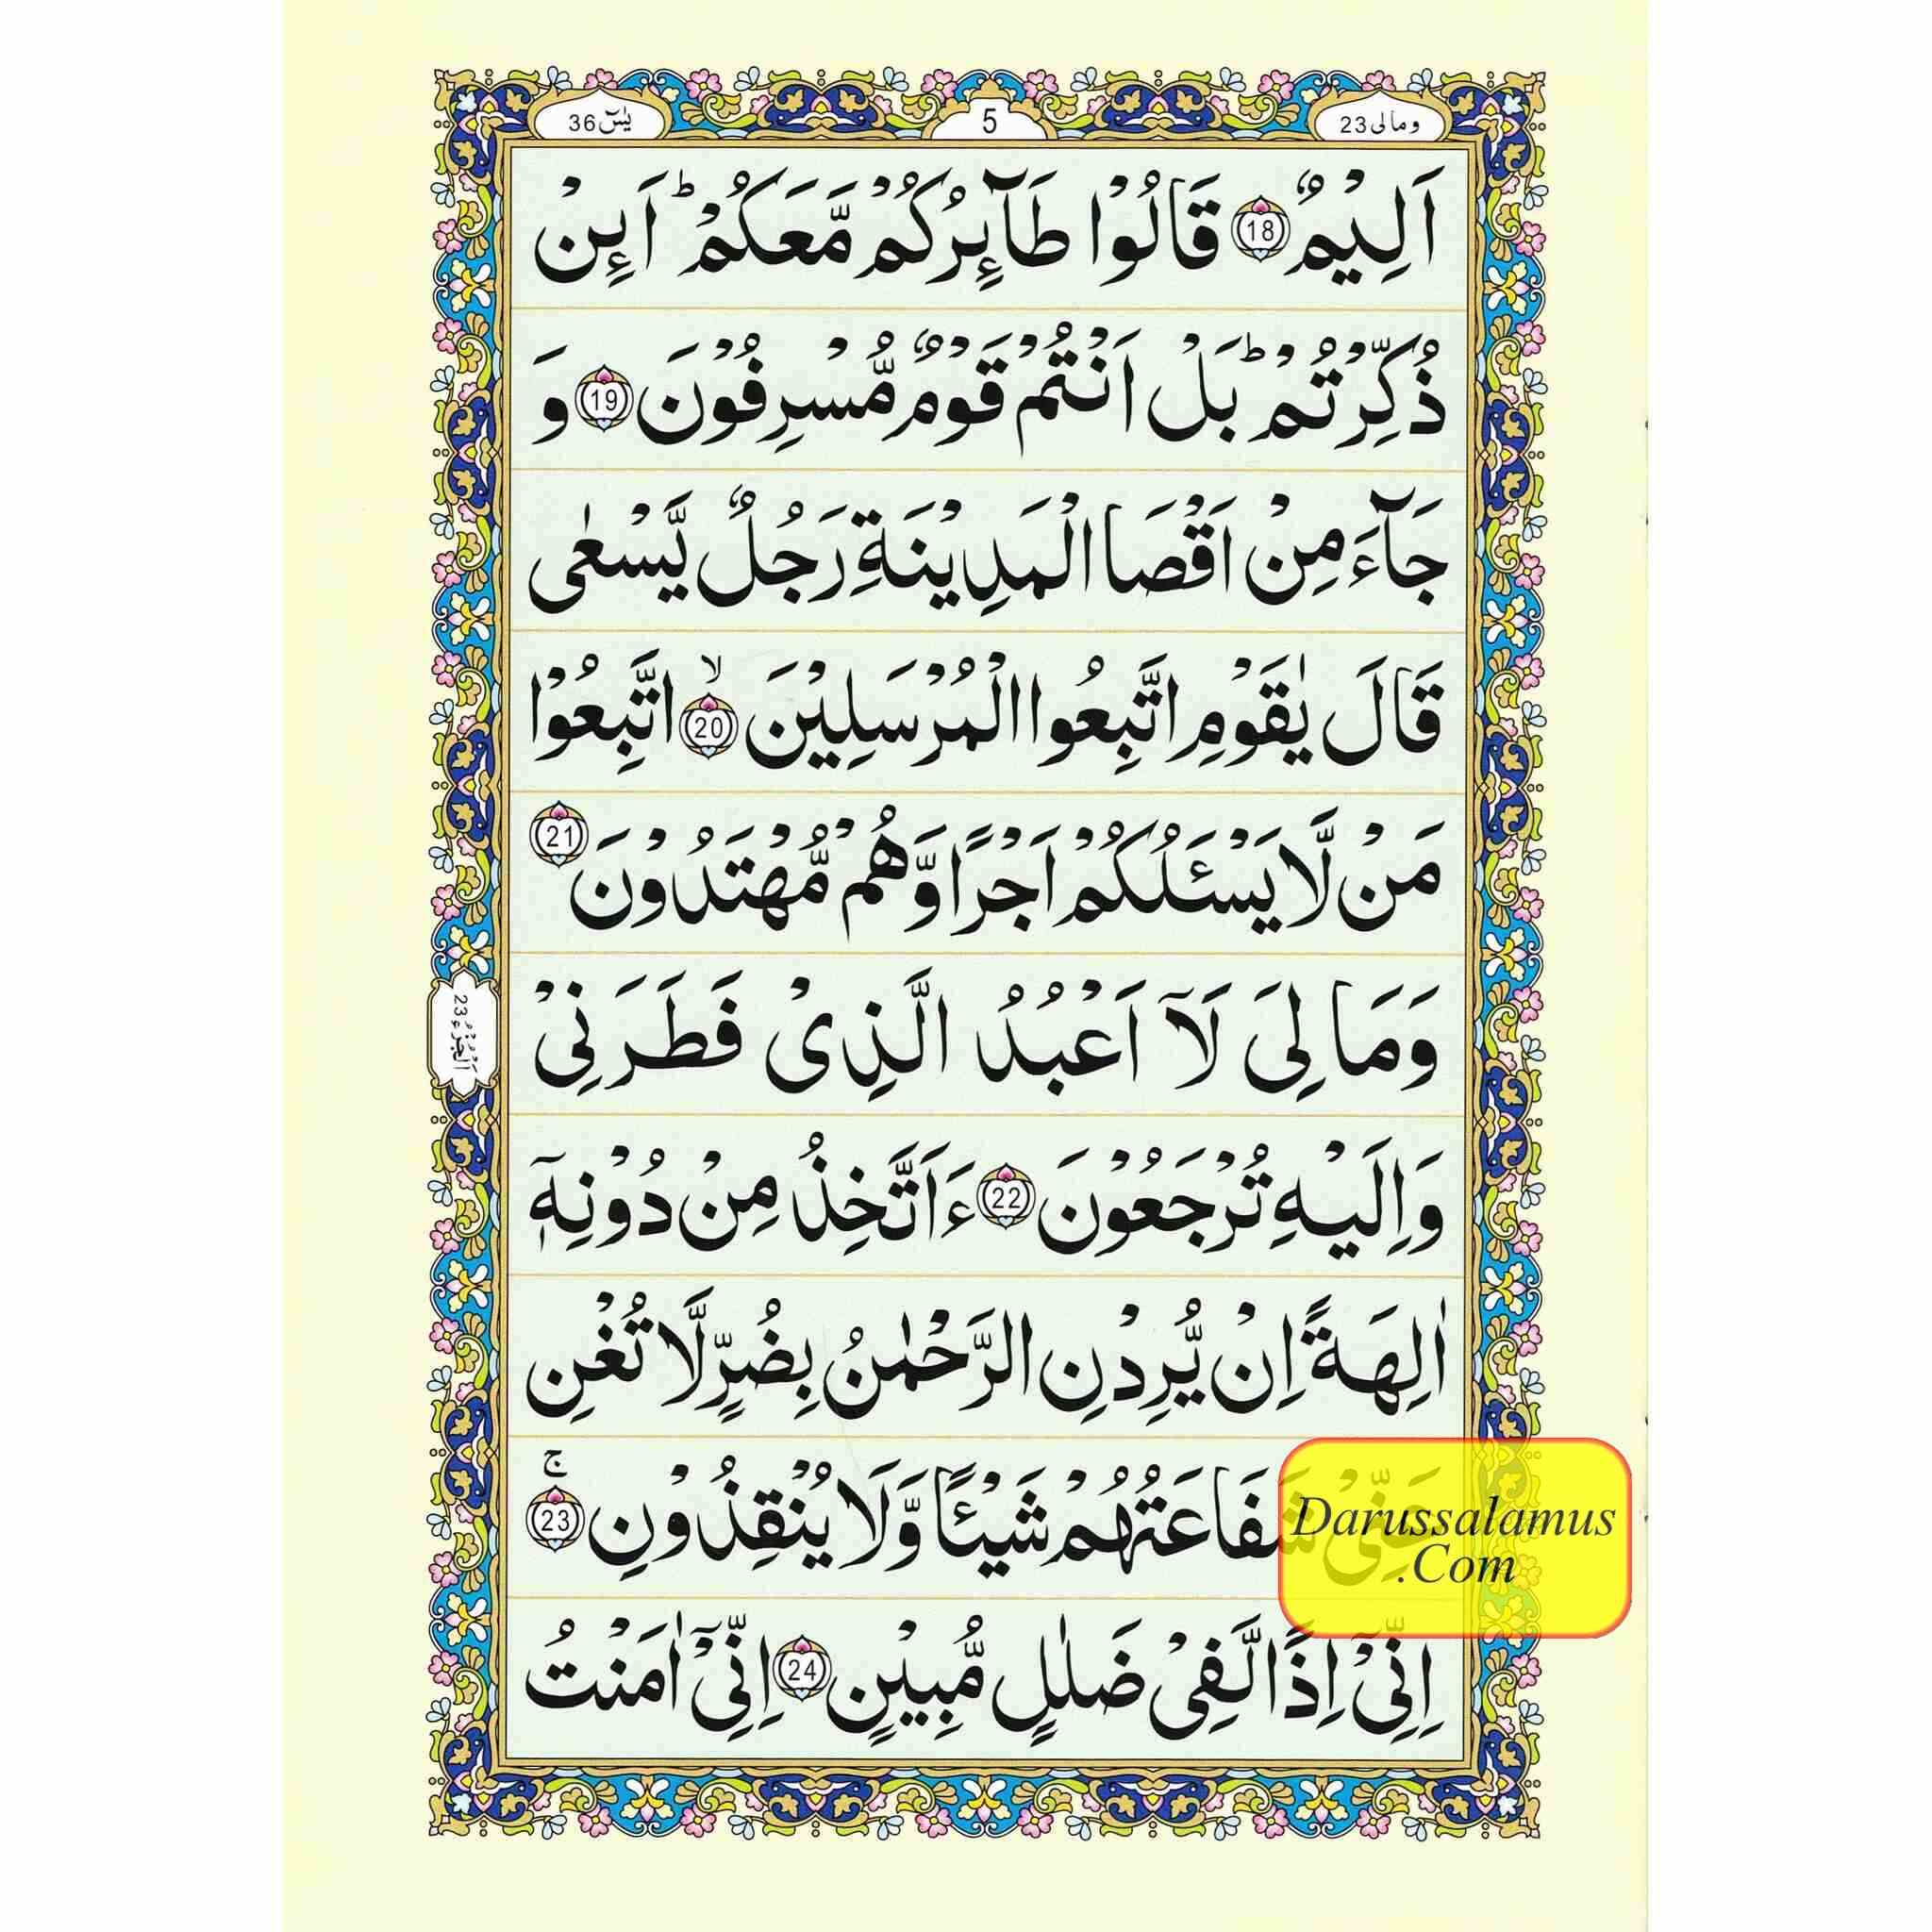 يٰسٓ 36
5
وما لی 23
اَلِيْمٌ 18 قَالُوْا طَآئِرُكُمْ مَّعَكُمْ ؕ اَئِنْ
ذُكِّرْتُمْ ؕ بَلْ اَنْتُمْ قَوْمٌ مُّسْرِفُوْنَ 19 وَ
جَآءَ مِنْ اَقْصَا الْمَدِيْنَةِ رَجُلٌ يَّسْعٰى
قَالَ يٰقَوْمِ اتَّبِعُوا الْمُرْسَلِيْنَ ۙ 20 اتَّبِعُوْا
مَنْ لَّا يَسْئَلُكُمْ اَجْرًا وَّهُمْ مُّهْتَدُوْنَ 21
وَمَا لِىَ لَآ اَعْبُدُ الَّذِىْ فَطَرَنِىْ
وَاِلَيْهِ تُرْجَعُوْنَ 22 ءَاَتَّخِذُ مِنْ دُوْنِهٖٓ
اٰلِهَةً اِنْ يُّرِدْنِ الرَّحْمٰنُ بِضُرٍّ لَّا تُغْنِ
عَنِّىْ شَفَاعَتُهُمْ شَيْئًا وَّلَا يُنْقِذُوْنِ ۚ 23
اِنِّىْٓ اِذًا لَّفِىْ ضَلٰلٍ مُّبِيْنٍ 24 اِنِّىْٓ اٰمَنْتُ
اَلْجُزْءُ 23
Darussalamus
.Com